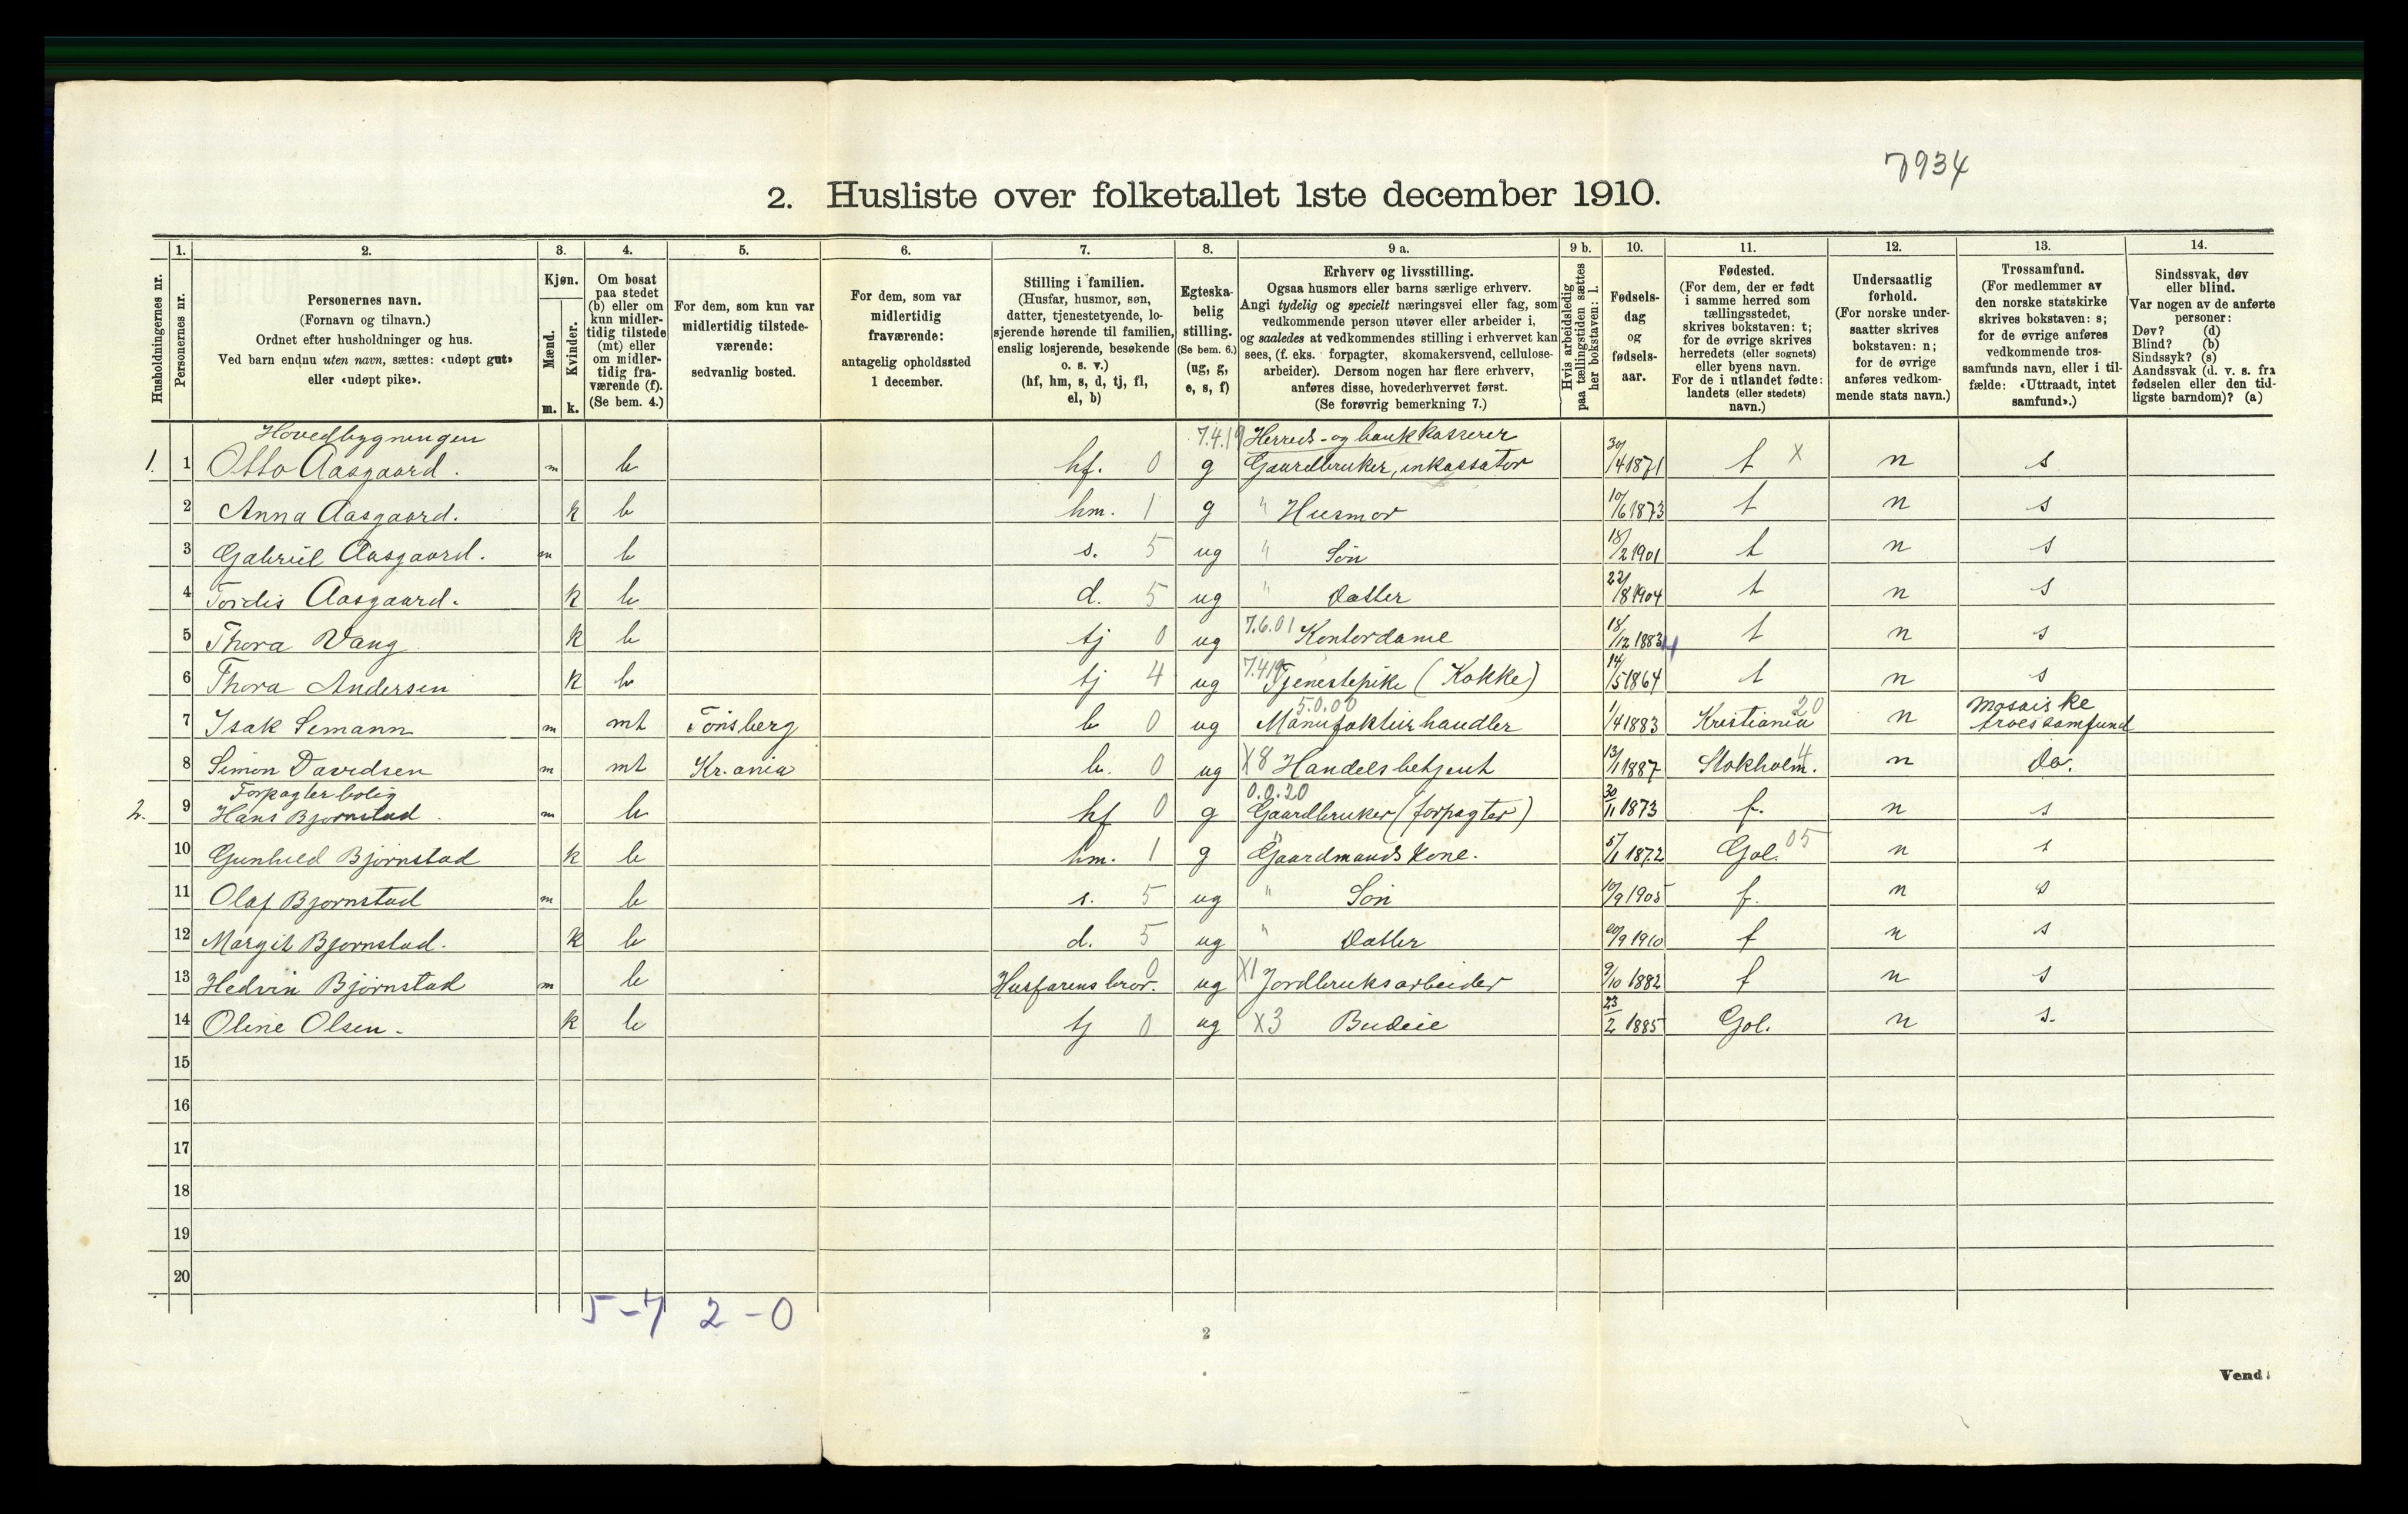 7934
2. Husliste over folketallet 1ste december 1910.
1. 2. 3. 4. 5. 6. 7. 8. 9 a. 9 b. 10. 11. 12. 13. 14.
Husholdningernes nr.
Personernes nr.
Personernes navn.
(Fornavn og tilnavn.)
Ordnet efter husholdninger og hus.
Ved barn endnu uten navn, sættes: «udøpt gut»
eller «udøpt pike».
Kjøn.
Mænd.
Kvinder.
m. k.
Om bosat
paa stedet
(b) eller om
kun midler-
tidig tilstede
(mt) eller
om midler-
tidig fra-
værende (f).
(Se bem. 4.)
For dem, som kun var
midlertidig tilstede-
værende:
sedvanlig bosted.
For dem, som var
midlertidig
fraværende:
antagelig opholdssted
1 december.
Stilling i familien.
(Husfar, husmor, søn,
datter, tjenestetyende, lo-
sjerende hørende til familien,
enslig losjerende, besøkende
o. s. v.)
(hf, hm, s, d, tj, fl,
el, b)
Egteska-
belig
stilling.
(Se bem. 6.)
(ug, g,
e, s, f)
Erhverv og livsstilling.
Ogsaa husmors eller barns særlige erhverv.
Angi tydelig og specielt næringsvei eller fag, som
vedkommende person utøver eller arbeider i,
og saaledes at vedkommendes stilling i erhvervet kan
sees, (f. eks. forpagter, skomakersvend, cellulose-
arbeider). Dersom nogen har flere erhverv,
anføres disse, hovederhvervet først.
(Se forøvrig bemerkning 7.)
Hvis arbeidsledig
paa tællingstiden sættes
her bokstaven: l.
Fødsels-
dag
og
fødsels-
aar.
Fødested.
(For dem, der er født
i samme herred som
tællingsstedet,
skrives bokstaven: t;
for de øvrige skrives
herredets (eller sognets)
eller byens navn.
For de i utlandet fødte:
landets (eller stedets)
navn.)
Undersaatlig
forhold.
(For norske under-
saatter skrives
bokstaven: n;
for de øvrige
anføres vedkom-
mende stats navn.)
Trossamfund.
(For medlemmer av
den norske statskirke
skrives bokstaven: s;
for de øvrige anføres
vedkommende tros-
samfunds navn, eller i til-
fælde: «Uttraadt, intet
samfund».)
Sindssvak, døv
eller blind.
Var nogen av de anførte
personer:
Døv? (d)
Blind? (b)
Sindssyk? (s)
Aandssvak (d. v. s. fra
fødselen eller den tid-
ligste barndom)? (a)
Hovedbygningen 7.4.19 Herreds- og bankkasserer
1. 1 Otto Aasgaard. m b hf. 0 g Gaardbruker, inkassator 30/4 1871 t X n s
2 Anna Aasgaard. k b hm. 1 g " Husmor 10/6 1873 t n s
3 Gabriel Aasgaard. m b s. 5 ug " Søn 18/2 1901 t n s
4 Tordis Aasgaard. k b d. 5 ug " Datter 22/8 1904 t n s
5 Thora Vang k b tj 0 ug 7.6.01 Kontordame 18/12 1883 4 t n s
6 Thora Andersen k b tj 4 ug 7.4.19 Tjenestepike (Kokke) 14/5 1864 t n s
5.0.00 20 Mosaiske
7 Isak Semann m mt Tønsberg b 0 ug Manufakturhandler 1/4 1883 Kristiania n troessamfund
8 Simon Davidsen m mt Kr.ania b. 0 ug X8 Handelsbetjent 13/1 1887 Stokholm. 4 n do.
Forpagterbolig 0.0.20
2. 9 Hans Bjørnstad. m b hf 0 g Gaardbruker (forpagter) 30/11 1873 f. n s
10 Gunhild Bjørnstad k b hm. 1 g " Gaardmands kone. 5/1 1872 Gol. 05 n s
11 Olaf Bjørnstad m b s. 5 ug " Søn 10/9 1905 f. n s
12 Margit Bjørnstad. k b d. 5 ug " Datter 20/9 1910 f n s
13 Hedvin Bjørnstad m b Husfarens bror. 0 ug X1 Jordbruksarbeider 9/10 1882 f n s
14 Oline Olsen. k b tj 0 ug X3 Budeie 23/2 1885 Gol. n s.
15
16
17
18
19
20
5-7 2-0
2
Vend!